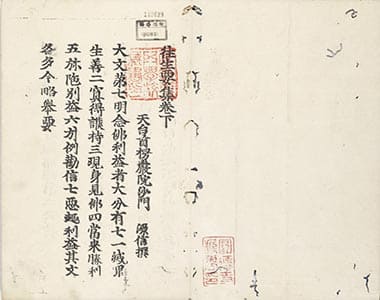 往生要集卷下
天台首楞嚴院沙門 源信撰
大文第七明念佛利益者大分有七一滅罪
生善二冥得護持三現身見佛四當來勝利
五弥陁別益六引例勸信七惡趣利益其文
各多今略舉要